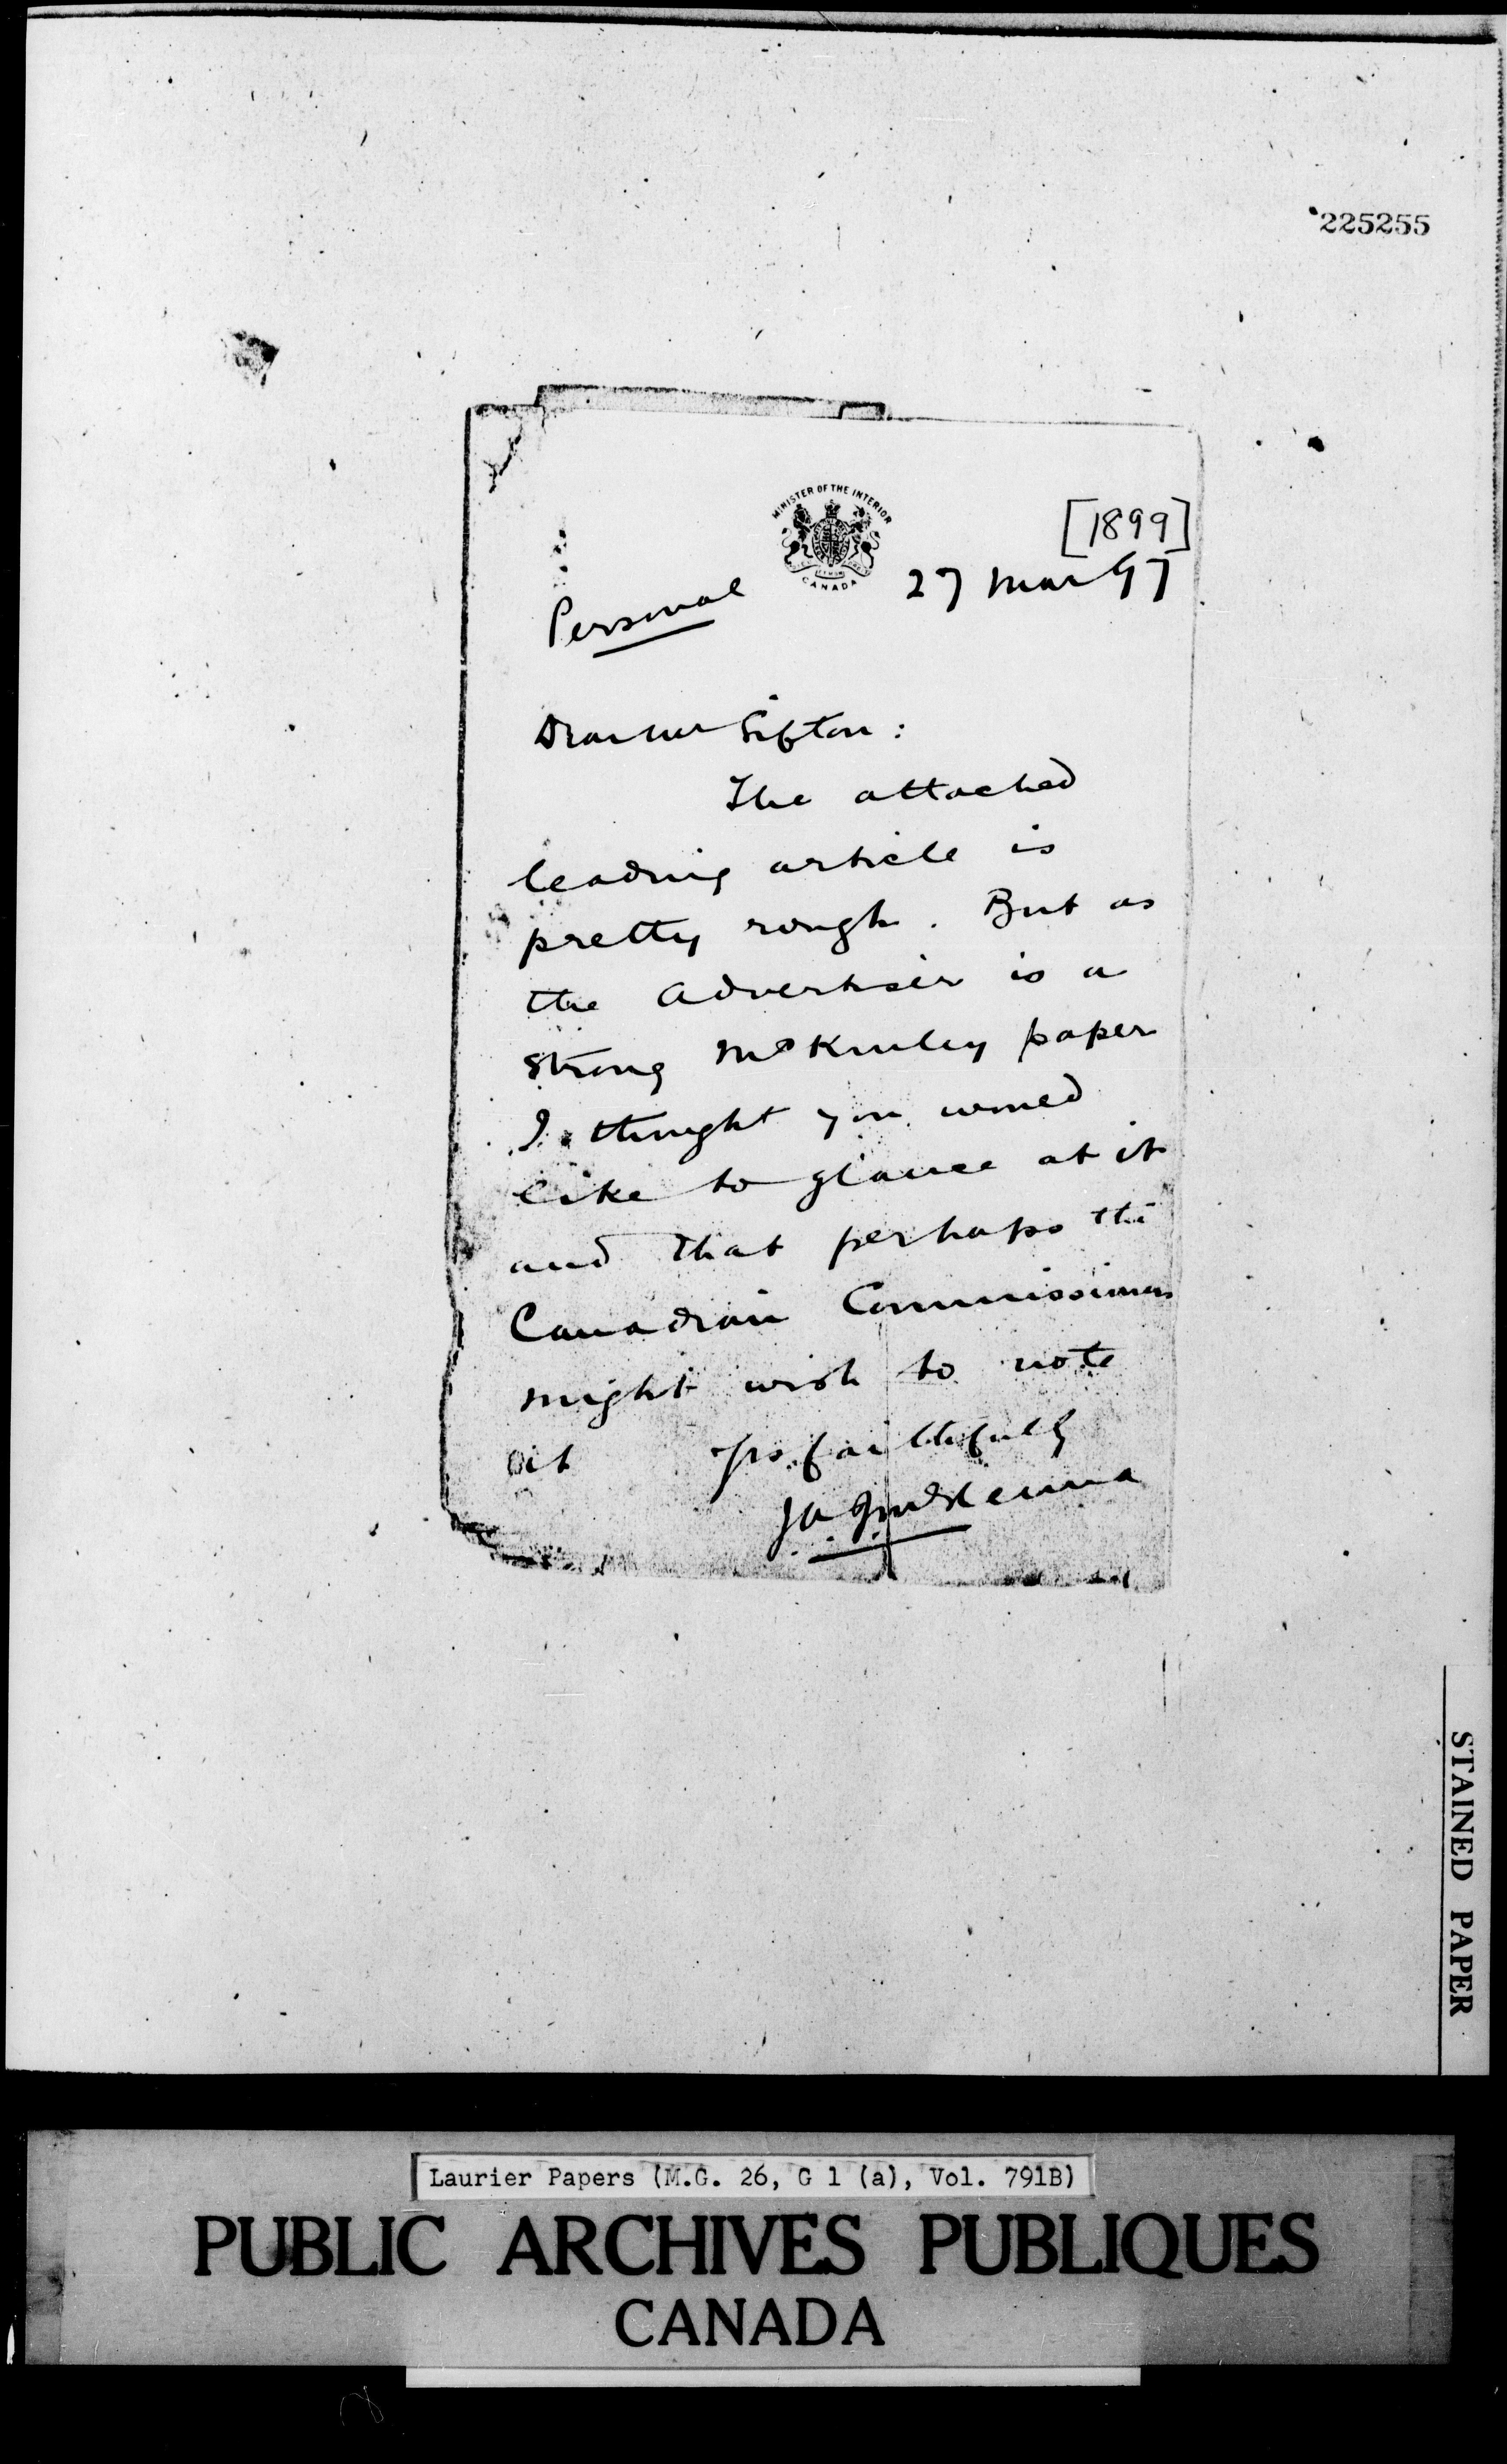 225255
MINISTER OF THE INTERIOR
CANADA
[1899]
27 Mar 97
Personal
Dear Mr Sifton:
The attached
leading article is
pretty rough. But as
the Advertiser is a
strong McKinley paper
I thought you would
like to glance at it
and that perhaps the
Canadian Commissioners
might wish to note
it Yrs. faithfully
JAJ McKenna
STAINED PAPER
Laurier Papers (M.G. 26, G 1 (a), Vol. 791B)
PUBLIC ARCHIVES PUBLIQUES
CANADA